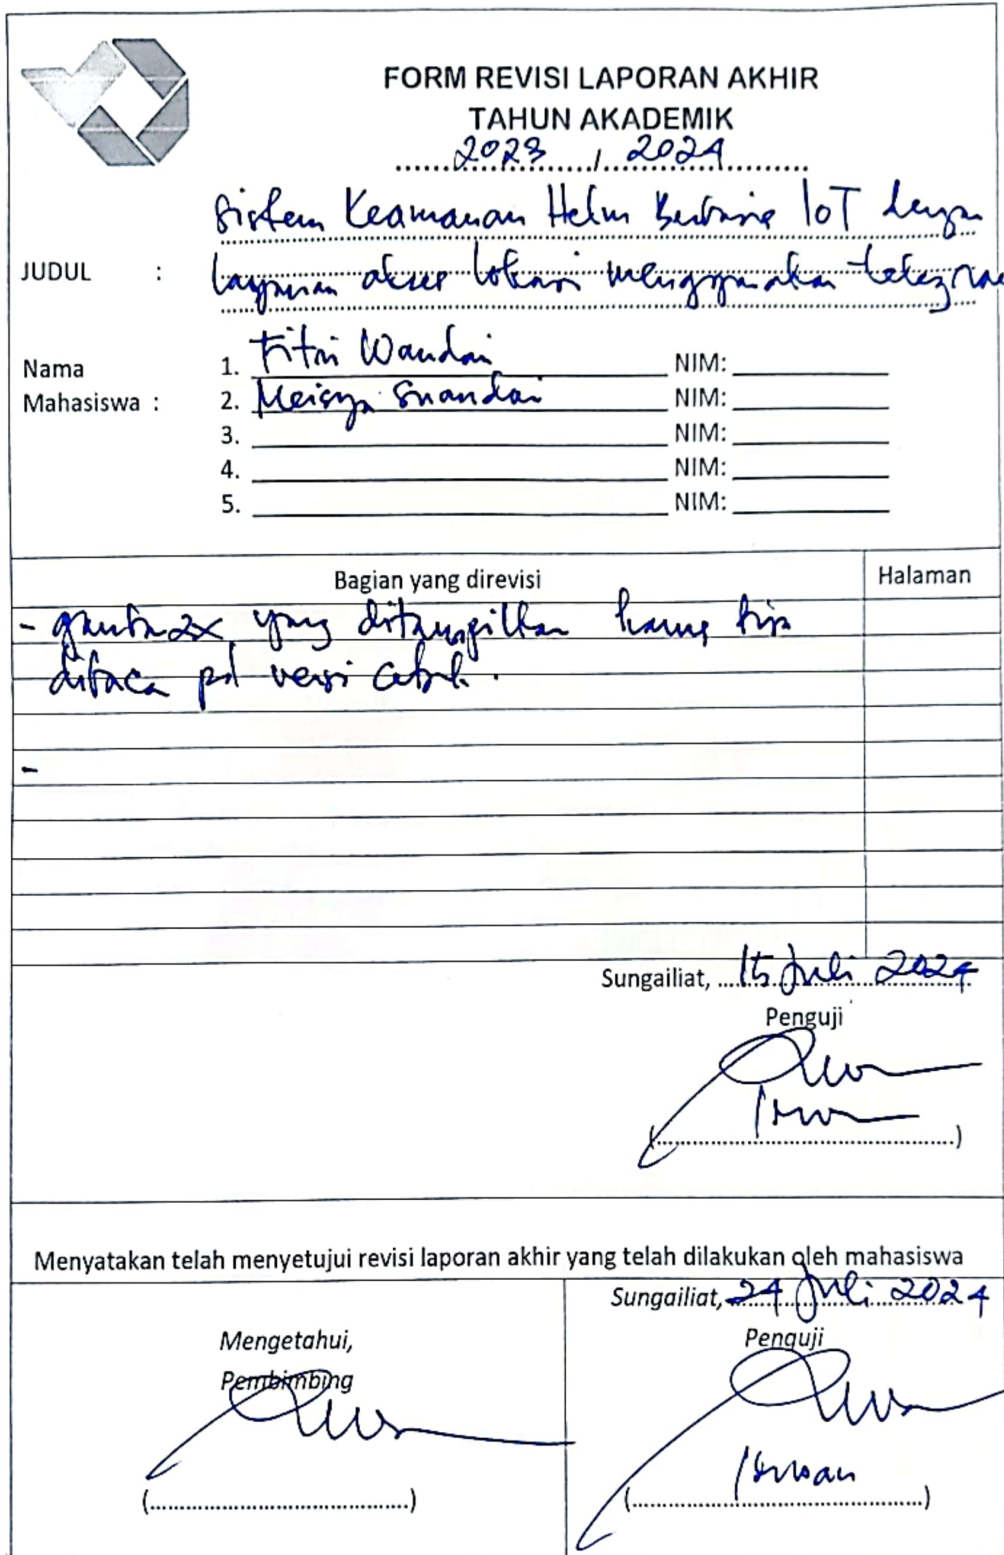 FORM REVISI LAPORAN AKHIR
TAHUN AKADEMIK
2023 / 2024
Sistem Keamanan Helm Berbasis IoT dengan
JUDUL :
layanan akses lokasi menggunakan telegram
Nama
Mahasiswa :
1. Fitri Wandari NIM:
2. Meisya NIM:
3. NIM:
4. NIM:
5. NIM:
Bagian yang direvisi Halaman
- gambar2x yang ditampilkan harus bisa
dibaca pd versi cetak.
-
Sungailiat, 15 Juli 2024
Penguji
(........................................)
Menyatakan telah menyetujui revisi laporan akhir yang telah dilakukan oleh mahasiswa
Sungailiat, 24 Juli 2024
Mengetahui, Penguji
Pembimbing
Irwan
(........................................) (........................................)